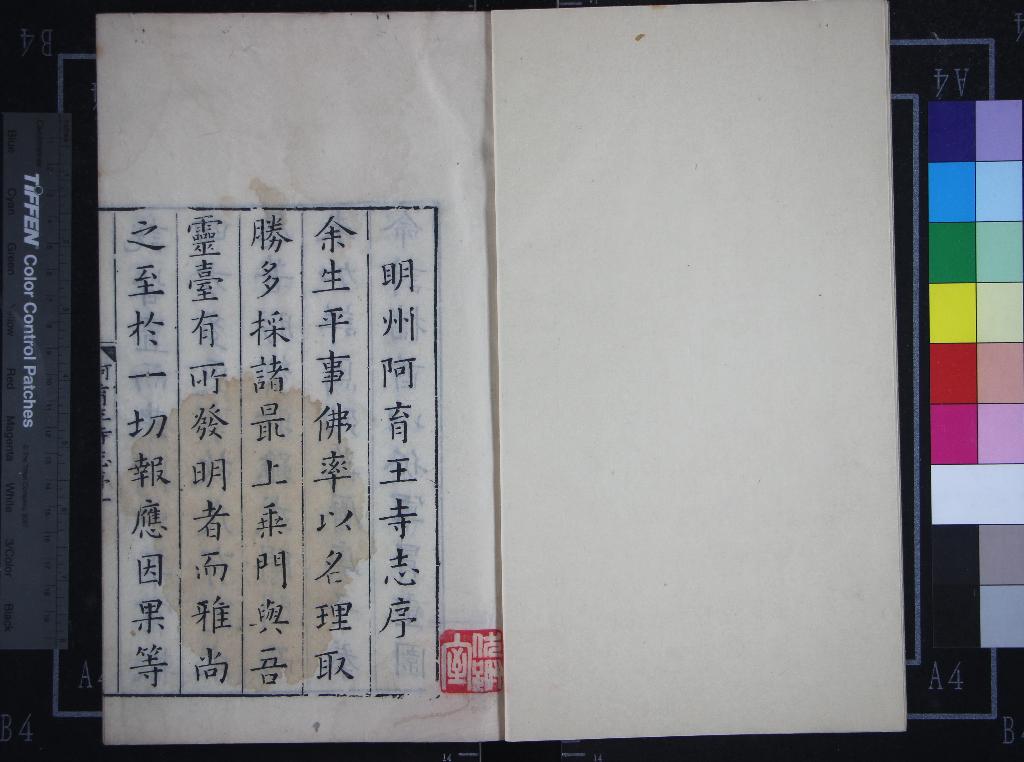 明州阿育王寺志序
余生平事佛率以名理取
勝多採諸最上乘門與吾
靈臺有所發明者而雅尚
之至於一切報應因果等
TIFFEN Color Control Patches
Blue
Cyan
Green
Yellow
Red
Magenta
White
3/Color
Black
B4
A4
A4
A4
B4
B
14
14